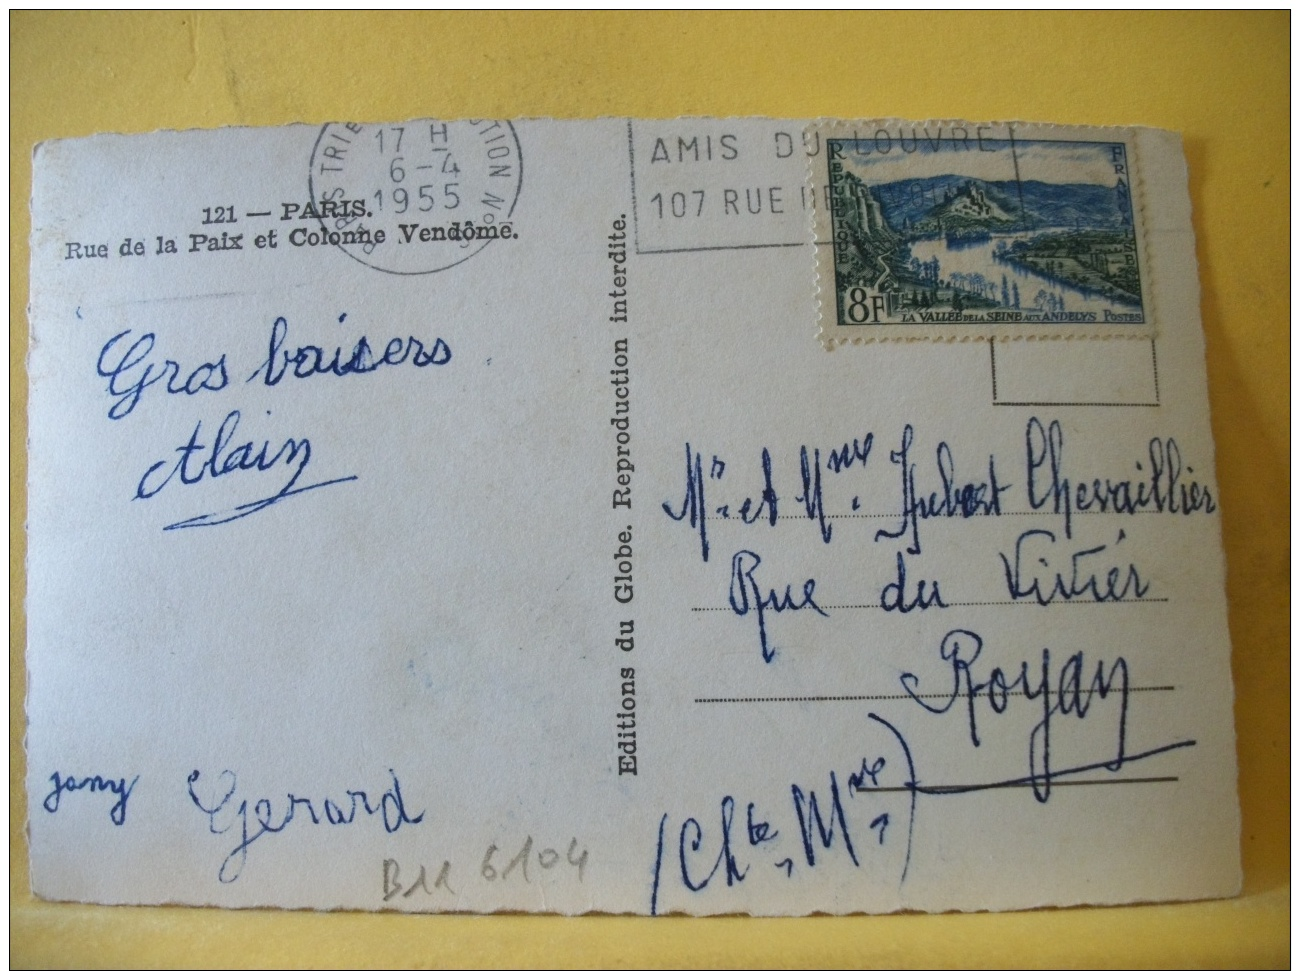 121 — PARIS.
Rue de la Paix et Colonne Vendôme.
17 H
6-4
1955
AMIS DU LOUVRE
107 RUE DE
REPUBLIQUE
FRANÇAISE
8F
LA VALLEE DE LA SEINE AUX ANDELYS POSTES
Gros baisers
Alain
jany Gerard
B11 6104
Editions du Globe. Reproduction interdite.
Mr. et Mme. Hubert Chevaillier
Rue du Vivier
Royan
(Chte. Mme)